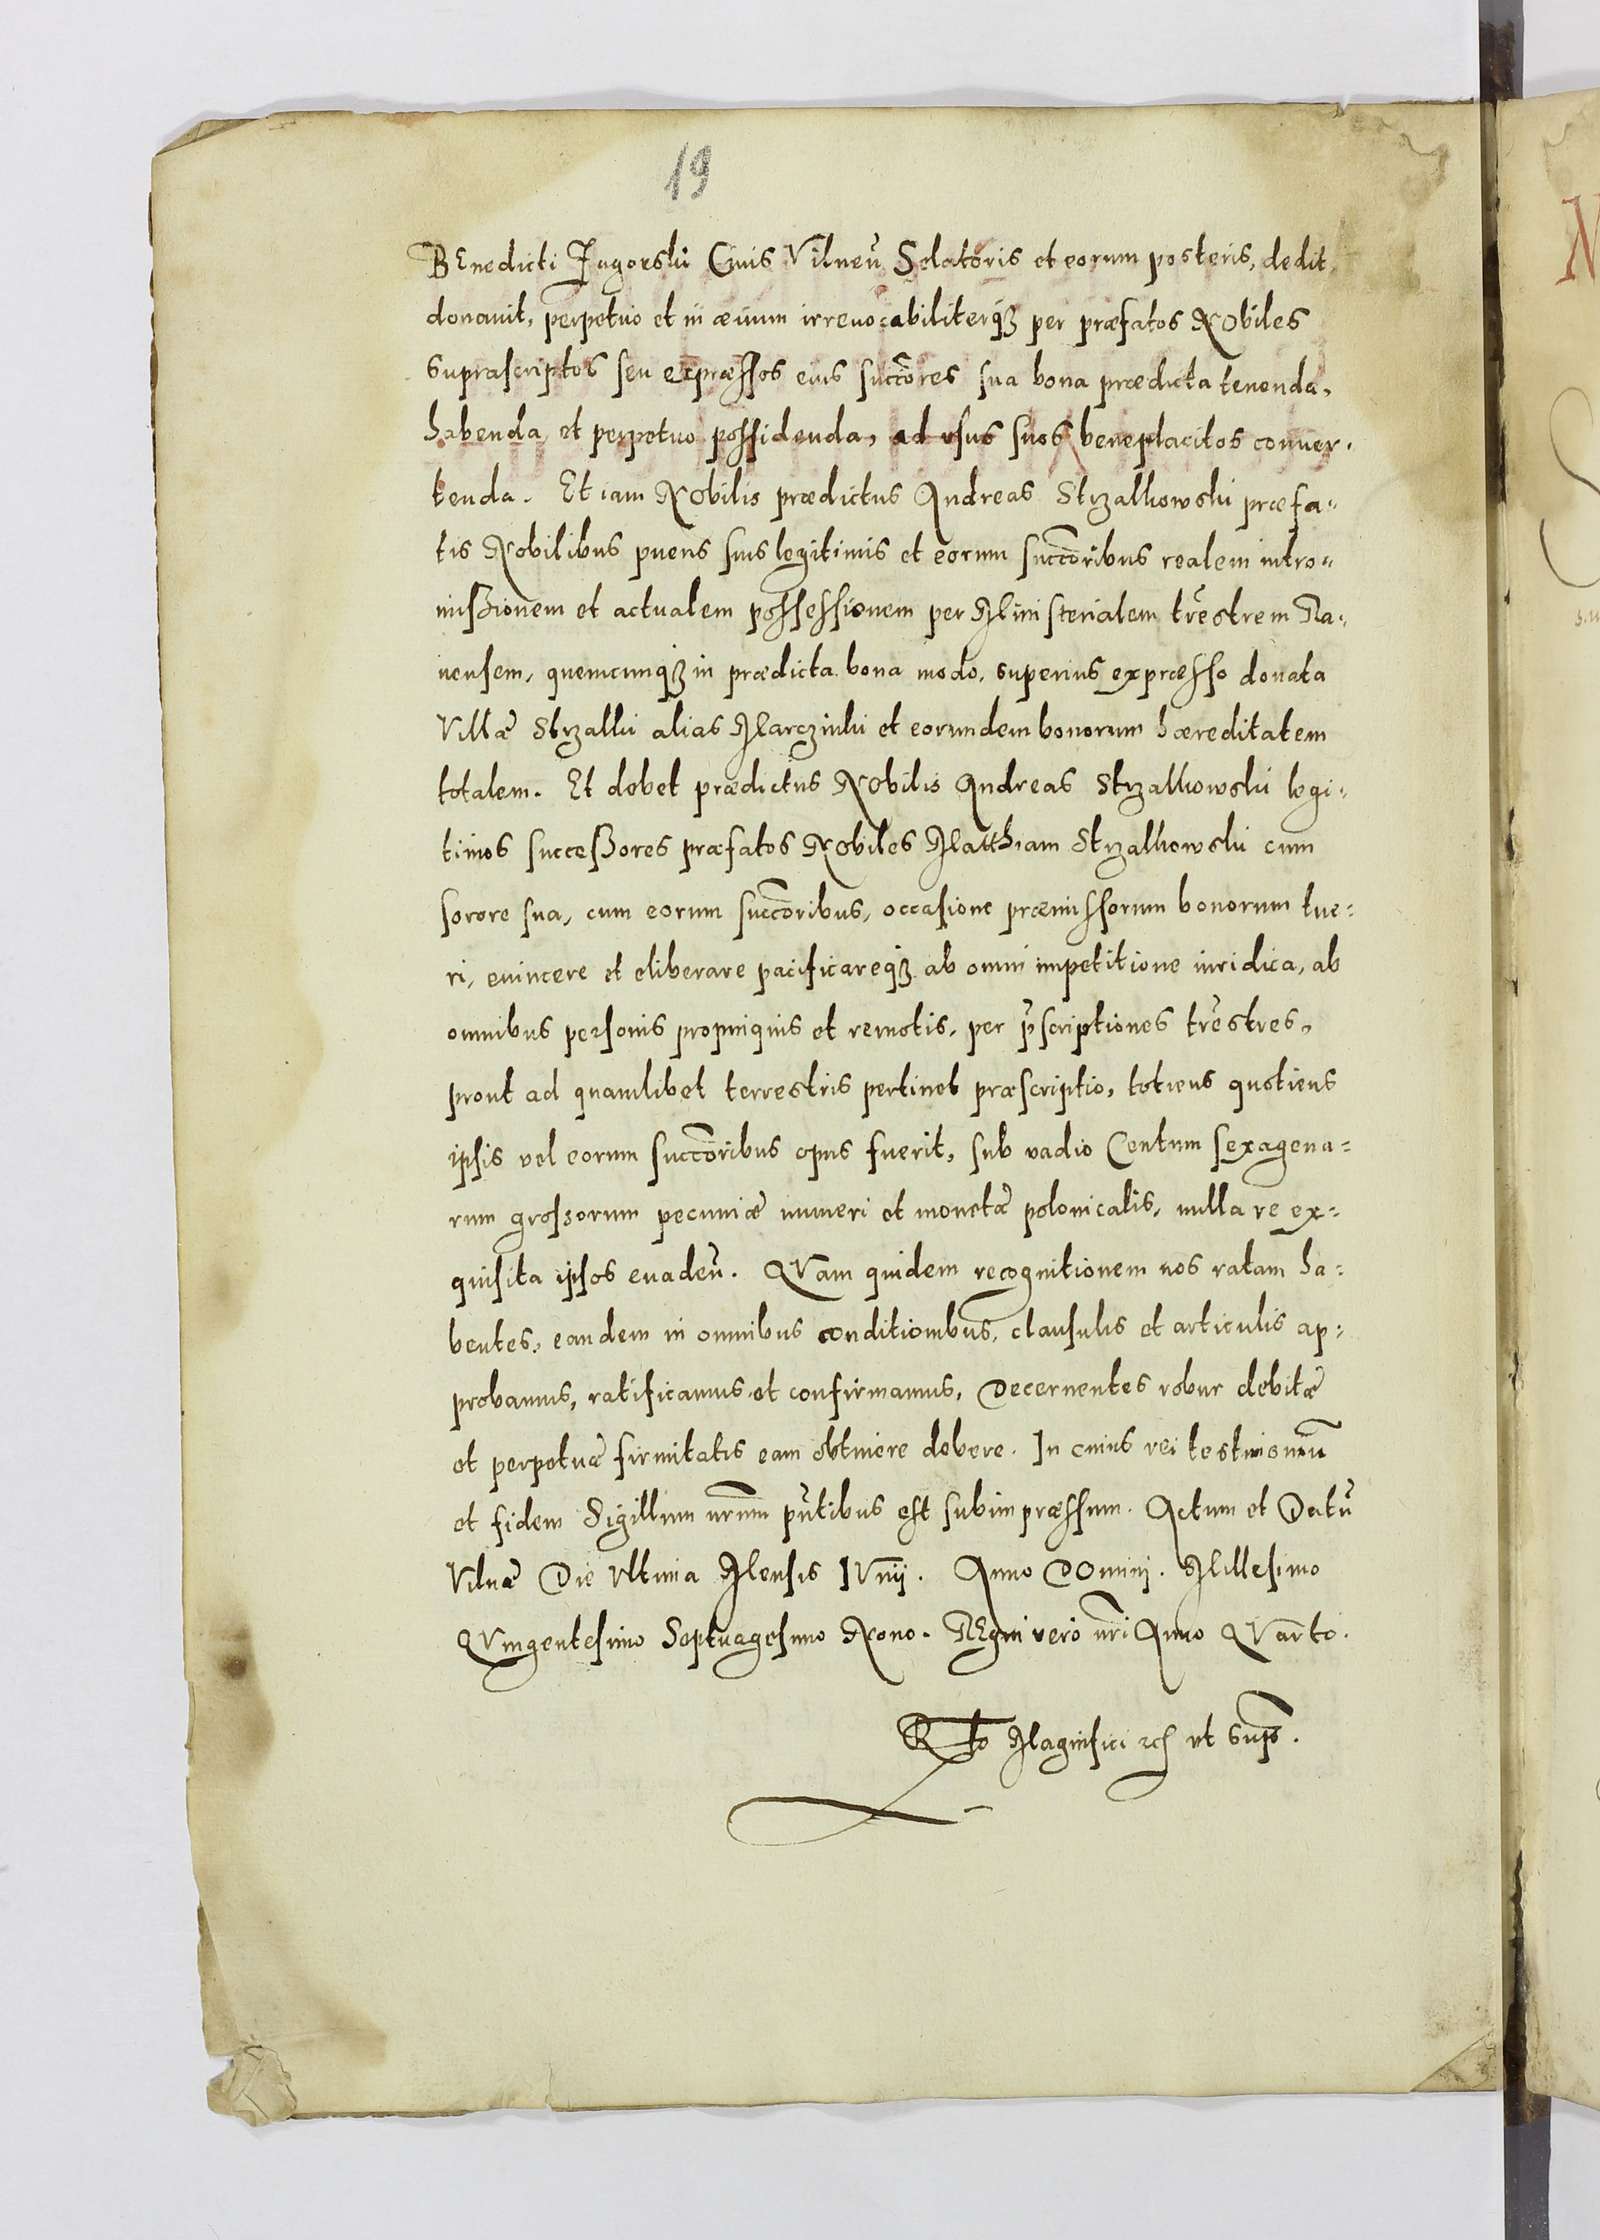 19
BEnedicti Jugorski Ciuis Vilneñ Selatoris et eorum posteris, dedit,
donauit, perpetuo et in æuum irreuocabiliterq3 per præfatos NObiles
suprascriptos seu expræssos eius succores sua bona prædicta tenenda,
habenda et perpetuo possidenda, ad vsus suos beneplacitos conuer-
tenda. Et iam NObilis prædictus Andreas Strzalkowski præfa-
tis NObilibus pueris suis legitimis et eorum succoribus realem intro-
missionem et actualem possessionem per Ministerialem trestrem Ra-
uensem, quemcunq3 in prædicta bona modo, superius expræsso donata
Villæ Strzalki alias Marczinki et eorundem bonorum hæreditatem
totalem. Et debet prædictus NObilis Andreas Strzalkowski legi-
timos successores præfatos NObiles Matthiam Strzalkowski cum
sorore sua, cum eorum succoribus, occasione præmissorum bonorum tue-
ri, euincere et eliberare pacificareq3 ab omni impetitione iuridica, ab
omnibus personis propinquis et remotis, per pscriptiones trestres,
prout ad quamlibet terrestris pertinet præscriptio, totiens quotiens
ipsis vel eorum succoribus opus fuerit, sub vadio Centum sexagena-
rum grossorum pecuniæ numeri et monetæ polonicalis, nulla re ex-
quisita ipsos euadeñ. QVam quidem recognitionem nos ratam ha-
bentes, eandem in omnibus conditionibus, clausulis et articulis ap-
probamus, ratificamus et confirmamus, Decernentes robur debitæ
et perpetuæ firmitatis eam obtinere debere. In cuius rei testimoniū
et fidem Sigillum nrum pntibus est subimpræssum. Actum et Datū
Vilnæ Die Vltima Mensis IVnij. Anno DOmini. Millesimo
QVingentesimo Septuagesimo Nono. REgni vero nri Anno QVarto.
Rlo Magnifici etc ut supra.